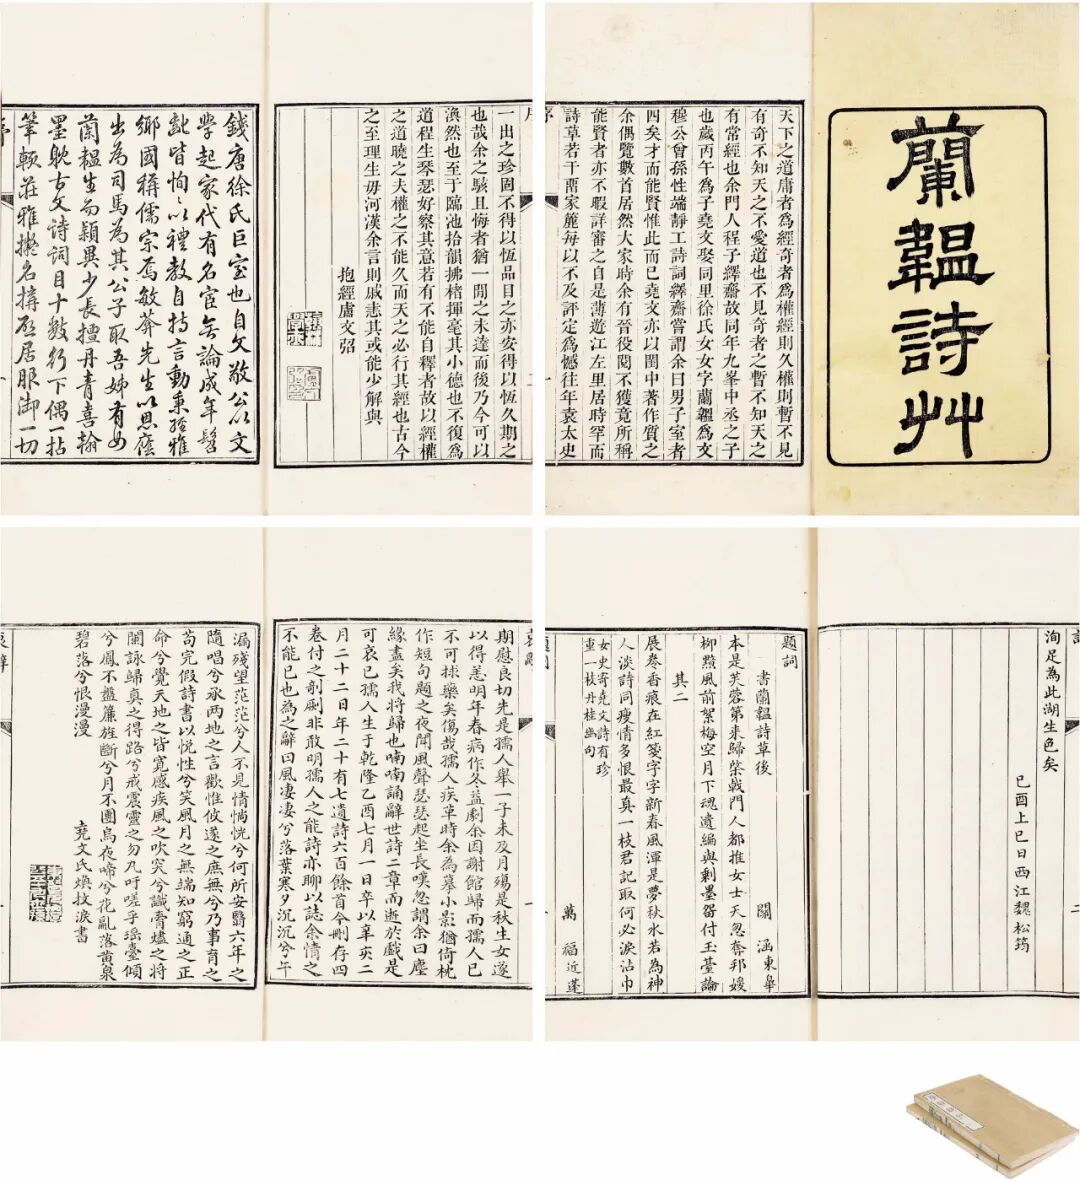 蘭韞詩艸
天下之道庸者為經奇者為權經則久權則暫不見
有奇不知天之不愛道也不見奇者之暫不知天之
有常經也余門人程子繹齋故同年九峯中丞之子
也歲丙午為子堯文娶同里徐氏女女字蘭韞為文
穆公曾孫性端靜工詩詞繹齋嘗謂余曰男子室者
四矣才而能賢惟此而已堯文亦以閨中著作質之
余偶覽數首居然大家時余有晉役閱不獲竟所稱
能賢者亦不暇詳審之自是薄遊江左里居時罕而
詩草若干畱家簏每以不及評定為憾往年袁太史
序
一
一出之珍固不得以恆品目之亦安得以恆久期之
也哉余之駭且悔者猶一間之未達而後乃今可以
渙然也至于臨池拾韻拂楮揮毫其小德也不復為
道程生琴瑟好察其意若有不能自釋者故以經權
之道曉之夫權之不能久而天之必行其經也古今
之至理生毋河漢余言則戚恚其或能少解與
抱經盧文弨
錢唐徐氏巨室也自文敬公以文
學起家代有名宦無論成年髫
齔皆恂恂以禮教自持言動秉經雅
鄉國稱儒宗焉敏莽先生以恩廕
出為司馬為其公子取吾姊有女
蘭韞生而穎異少長擅丹青喜翰
墨耽古文詩詞目十數行下偶一拈
筆輒莊雅擬名搆死居服御一切
序
一
洵足為此湖生色矣
己酉上巳日西江魏松筠
題詞
書蘭韞詩草後
關 涵東皋
本是芙蓉第來歸棨戟門人都推女士天忍奪邦媛
柳黯風前絮梅空月下魂遺編與剩墨畱付玉臺論
其二
展卷香痕在紅箋字字新春風渾是夢秋水若為神
人淡詩同瘦情多恨最真一枝君記取何必淚沾巾
女史寄堯文詩有珍
重一枝丹桂幽句
萬 福近蓬
期慰良切先是孺人舉一子未及月殤是秋生女遂
以得恙明年春病作冬益劇余因謝館歸而孺人已
不可捄藥矣傷哉孺人疾革時余為摹小影猶倚枕
作短句題之夜聞風聲瑟瑟起坐長嘆忽謂余曰塵
緣盡矣我將歸也喃喃誦辭世詩二章而逝於戲是
可哀已孺人生于乾隆乙酉七月一日辛以辛亥二
月二十二日年二十有七遺詩六百餘首今刪存四
卷付之剞劂非敢明孺人之能詩亦聊以誌余情之
不能已也為之辭曰風淒淒兮落葉寒夕沉沉兮午
漏殘望茫茫兮人不見情惝恍兮何所安翳六年之
隨唱兮承兩地之言歡惟攸遂之庶無兮乃事育之
苟完假詩書以悅性兮笑風月之無端知窮通之正
命兮覺天地之皆寬感疾風之吹突兮識膏燼之將
闌詠歸真之得路兮戒震靈之勿凡吁嗟乎瑶臺傾
兮鳳不盤簾旌斷兮月不團烏夜啼兮花亂落黃泉
碧落兮恨漫漫
堯文氏煥抆淚書